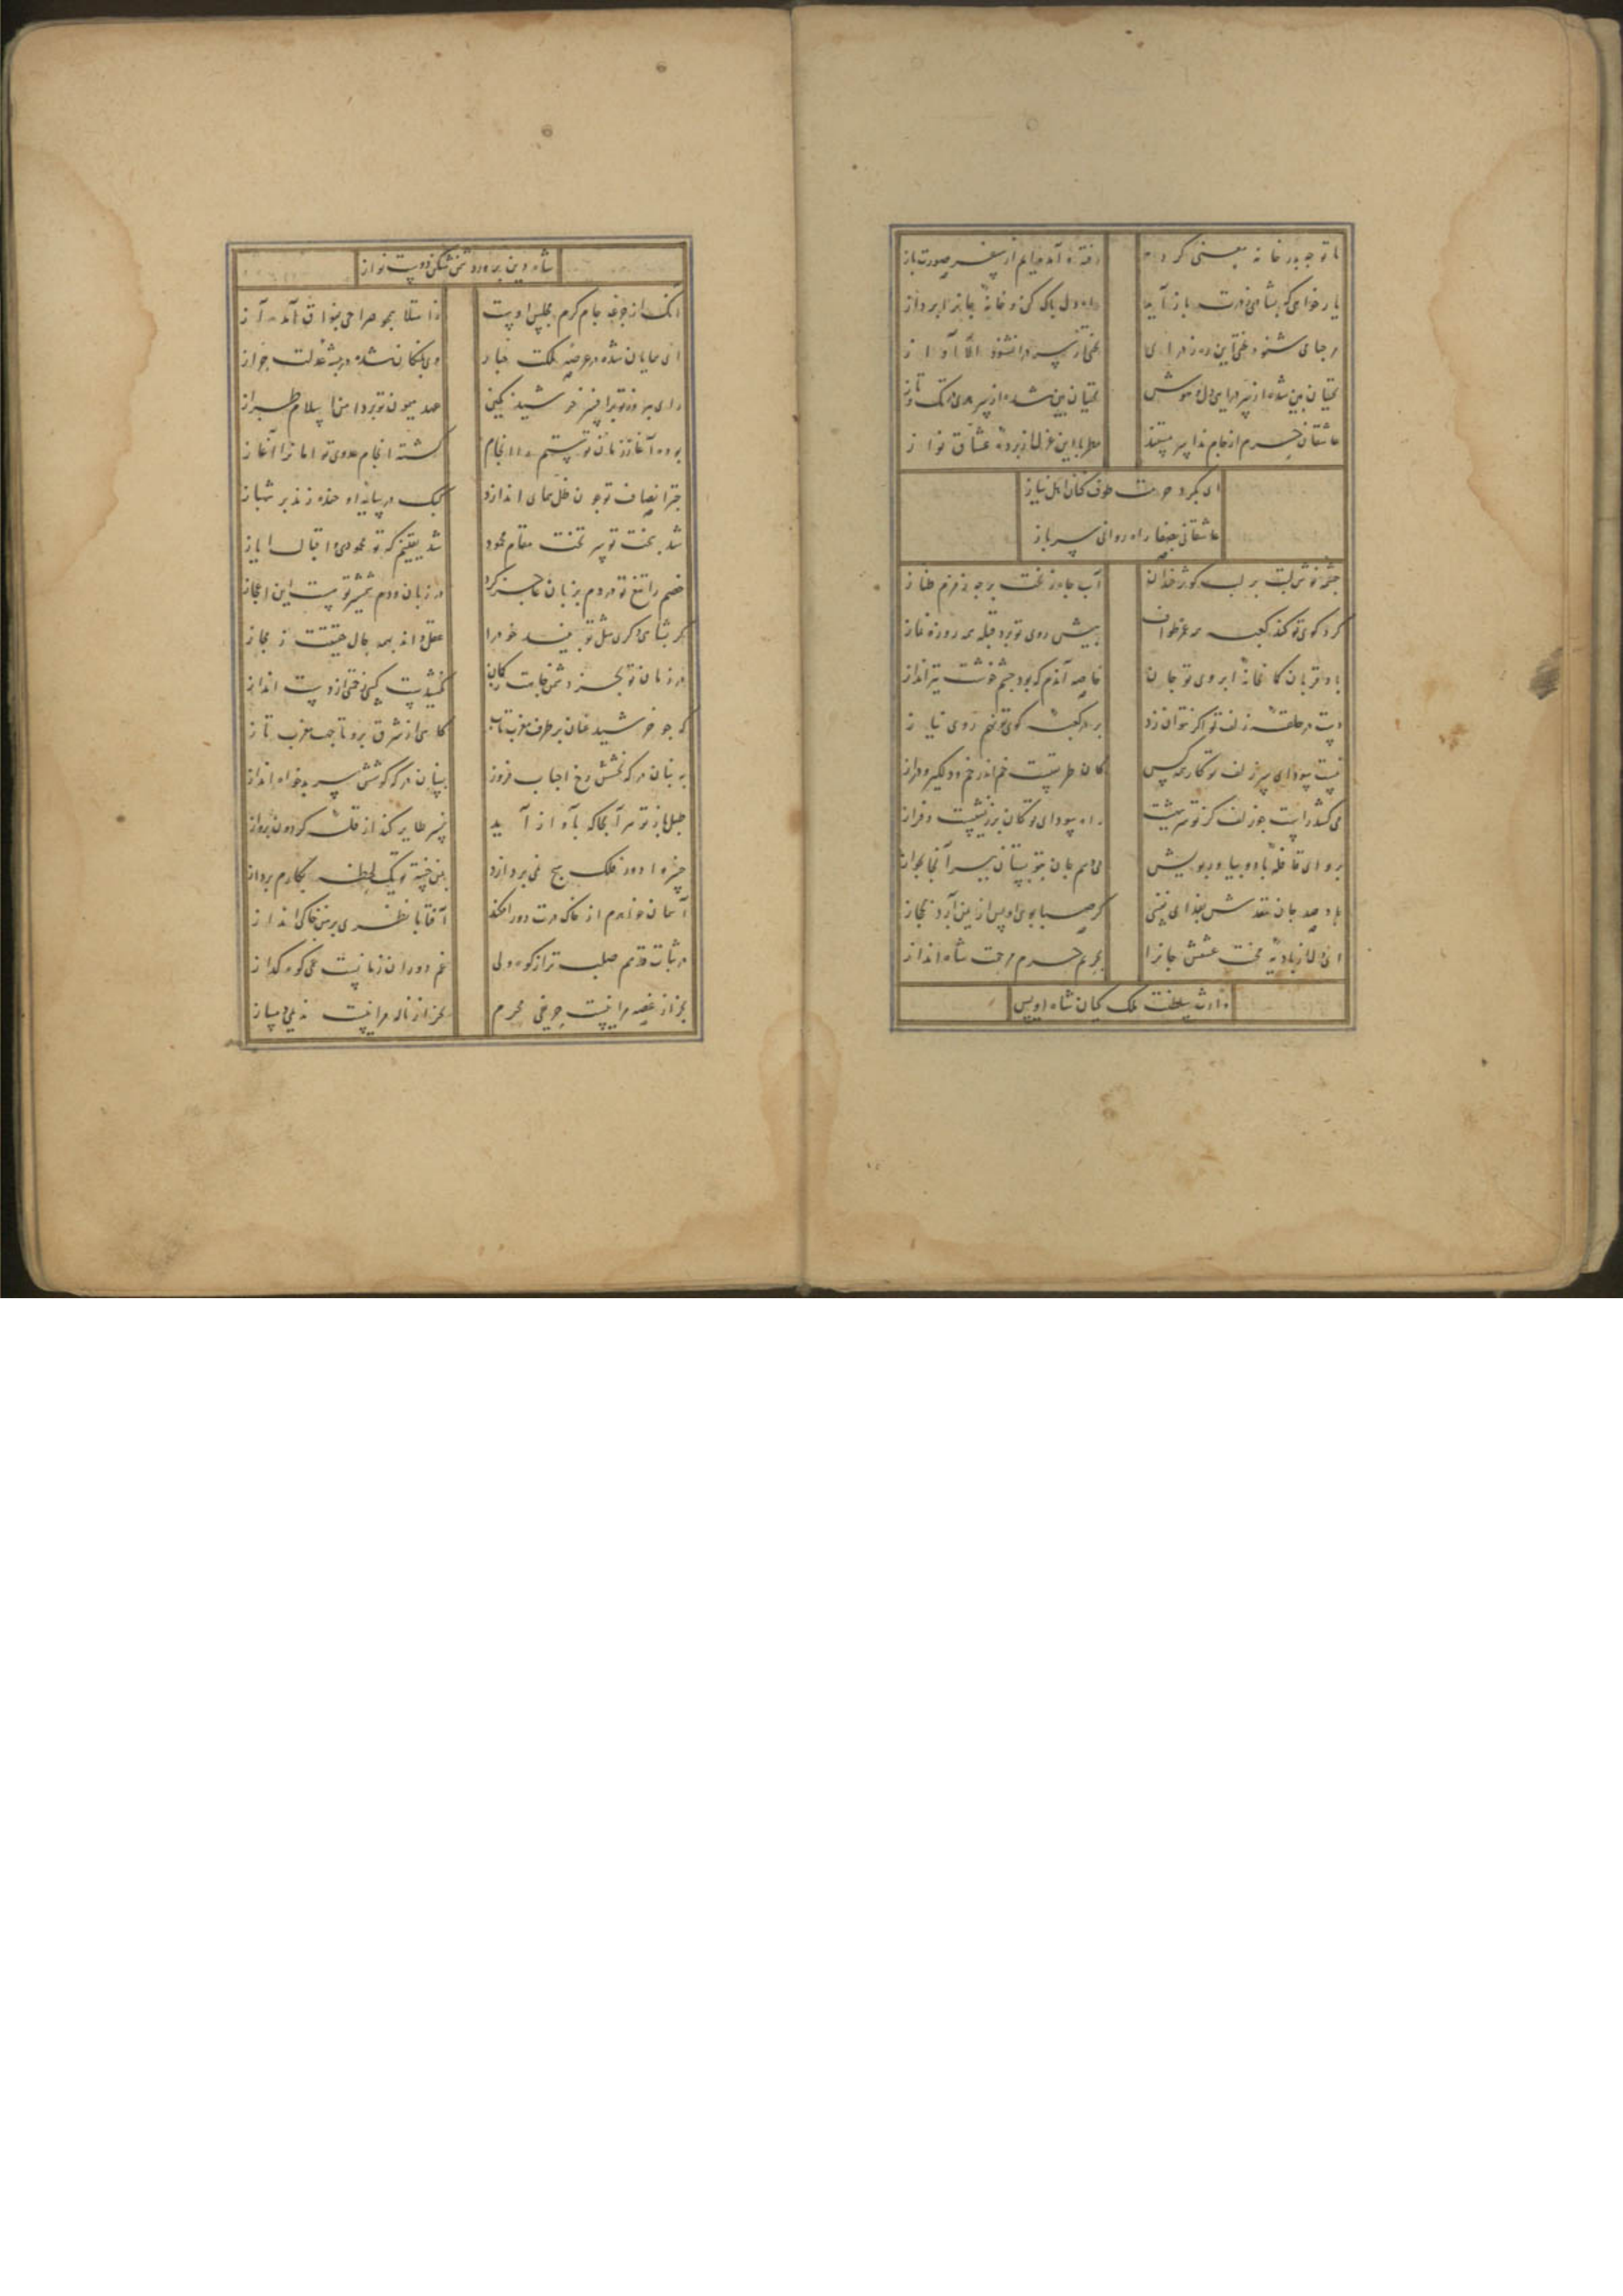 با تو جه بدر خانه معنی کرده رفته و آمده ایم از سفر صورت باز
یار خواهی که بشادی ز درت باز آید راه دل پاک کن و خانه جانرا بپرداز
محتسبان بین شده از سر درای دل و هوش
عاشقان خرم از جام ندا سر مستند مطربا این غزل از پرده عشاق نواز
ای بگرد حرمت طوف کنان اهل نیاز
عاشقانی بصفا راه روانی سرباز
چشمه نوش لبت بر لب کوثر خندان آب جاه زنخت بر چه زمزم طناز
کرد کوی تو کند کعبه همه عمر طواف پیش روی تو برد قبله همه روزه نماز
باد قربان کمانخانه ابروی تو جان خاصه آندم که بود چشم خوشت تیرانداز
دست در حلقه زلف تو اگر نتوان زد بر در کعبه کوی تو نهم روی نیاز
نیست سودای سر زلف تو کار همه کس کان طریقیست خم اندر خم و دلگیر و دراز
می کشد راست جو زلف کز تو سر پشت راه سودای تو کان پرز نشیبست و فراز
برو ای قافله باد و بیاور بویش می دهم جان بتو بستان ببر آنجا بجواز
باد صد جان نقدش بفدای نفسی کر صبا بوی اویس از یمن آرد بحجاز
ای دل از بادیه محنت عشقش جانرا بحریم حرم مرحمت شاه انداز
وارث سلطنت ملک کیان شاه اویس
شاه دین پرور دشمن شکن دوست نواز
آنک از جرعه جام کرم مجلس اوست ز امتلا همچو صراحی بفواق آمده آز
ای همایان شده در عرصه ملکت خباز وی پلنگان شده در بیشه عدلت خراز
رای پیروز ترا فیروز خورشید نگین عهد میمون تو بر دامن اسلام طراز
بوده آغاز زمان تو ستم را انجام گشته انجام عدوی تو امانرا آغاز
چتر انصاف تو چون ظل همای اندازد کبک در سایه او خنده زند بر شهباز
شد بخت تو سر تخت مقام محمود شد یقینم که تو محمودی و اقبال ایاز
خصم را تیغ تو در دم بزبان عاجز کرد در زبان و دم شمشیر تو هست این اعجاز
کر بشاهی دکری مثل تو بیند خود را عقل داند همه حال حقیقت ز مجاز
در زمان تو بجز دشمن جاهت کمان نکشیدست کسی زحمتی از دست انداز
که جو خورشید عنان بر طرف مغرب تاب کاهی از مشرق برو تا جهت مغرب تاز
به بنان در که بخشش رخ احباب فروز بسنان در که کوشش سر بدخواه انداز
طبل باز تو هر آنجا که بآواز آید نسر طایر کند از قله کردون پرواز
خسروا دور فلک هیچ نمی پردازد بمن خسته تو یک لحظه بکارم پرداز
آسمان خواهدم از خاک درت دور افکند آفتابا نظری بر من خاکی انداز
در ثبات قدمم صلب تر از کوه ولی غم دوران زمانیست غمی کوه گداز
بجز از غصه مرا نیست حریفی محرم بجز از ناله مرا نیست ندیمی دمساز